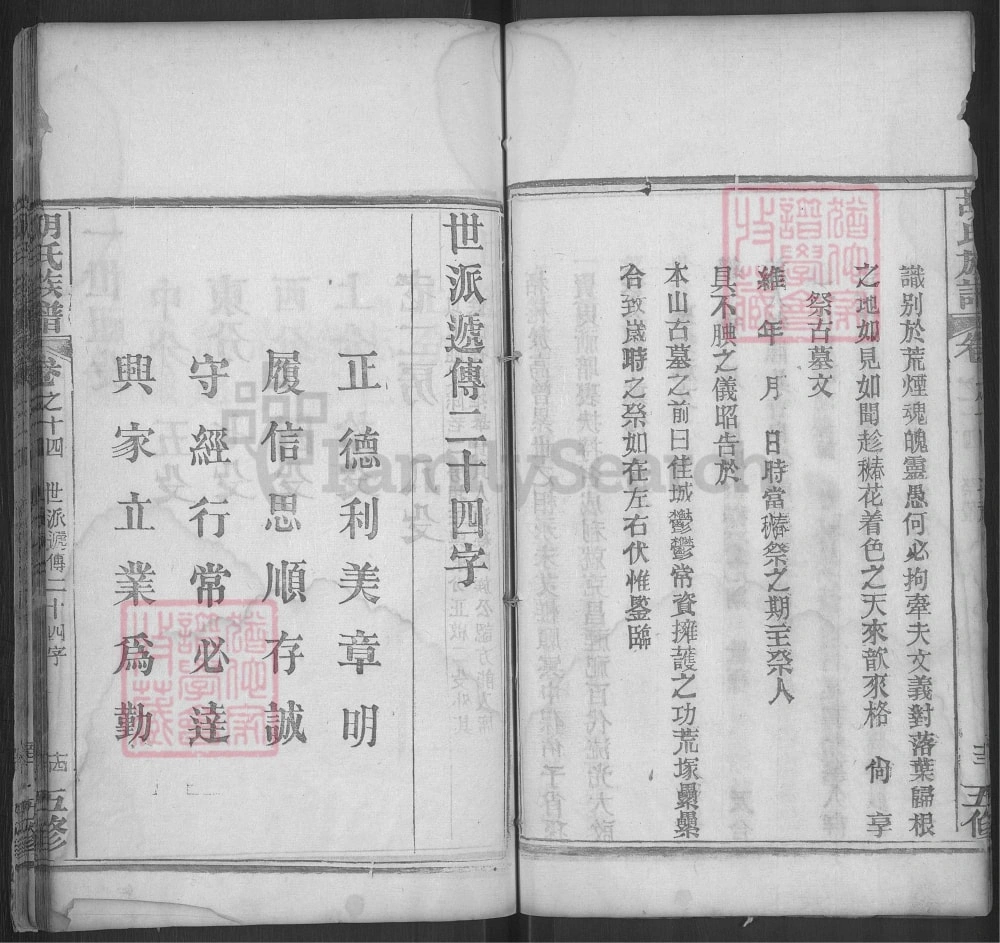 胡氏族譜
卷
五修
識別於荒煙魂魄靈愚何必拘牽夫文義對落葉歸根
之地如見如聞趁椿花着色之天來歆來格 尙 享
祭古墓文
維 年 月 日時當椿祭之期主祭人
具不腆之儀昭告於
本山古墓之前曰佳城鬱鬱常資擁護之功荒塚纍纍
合致歲時之祭如在左右伏惟鑒臨
世派遞傳二十四字
正德利美章明
履信思順存誠
守經行常必達
興家立業爲勤
胡氏族譜
卷之十四 世派遞傳二十四字
十四 五修
FamilySearch